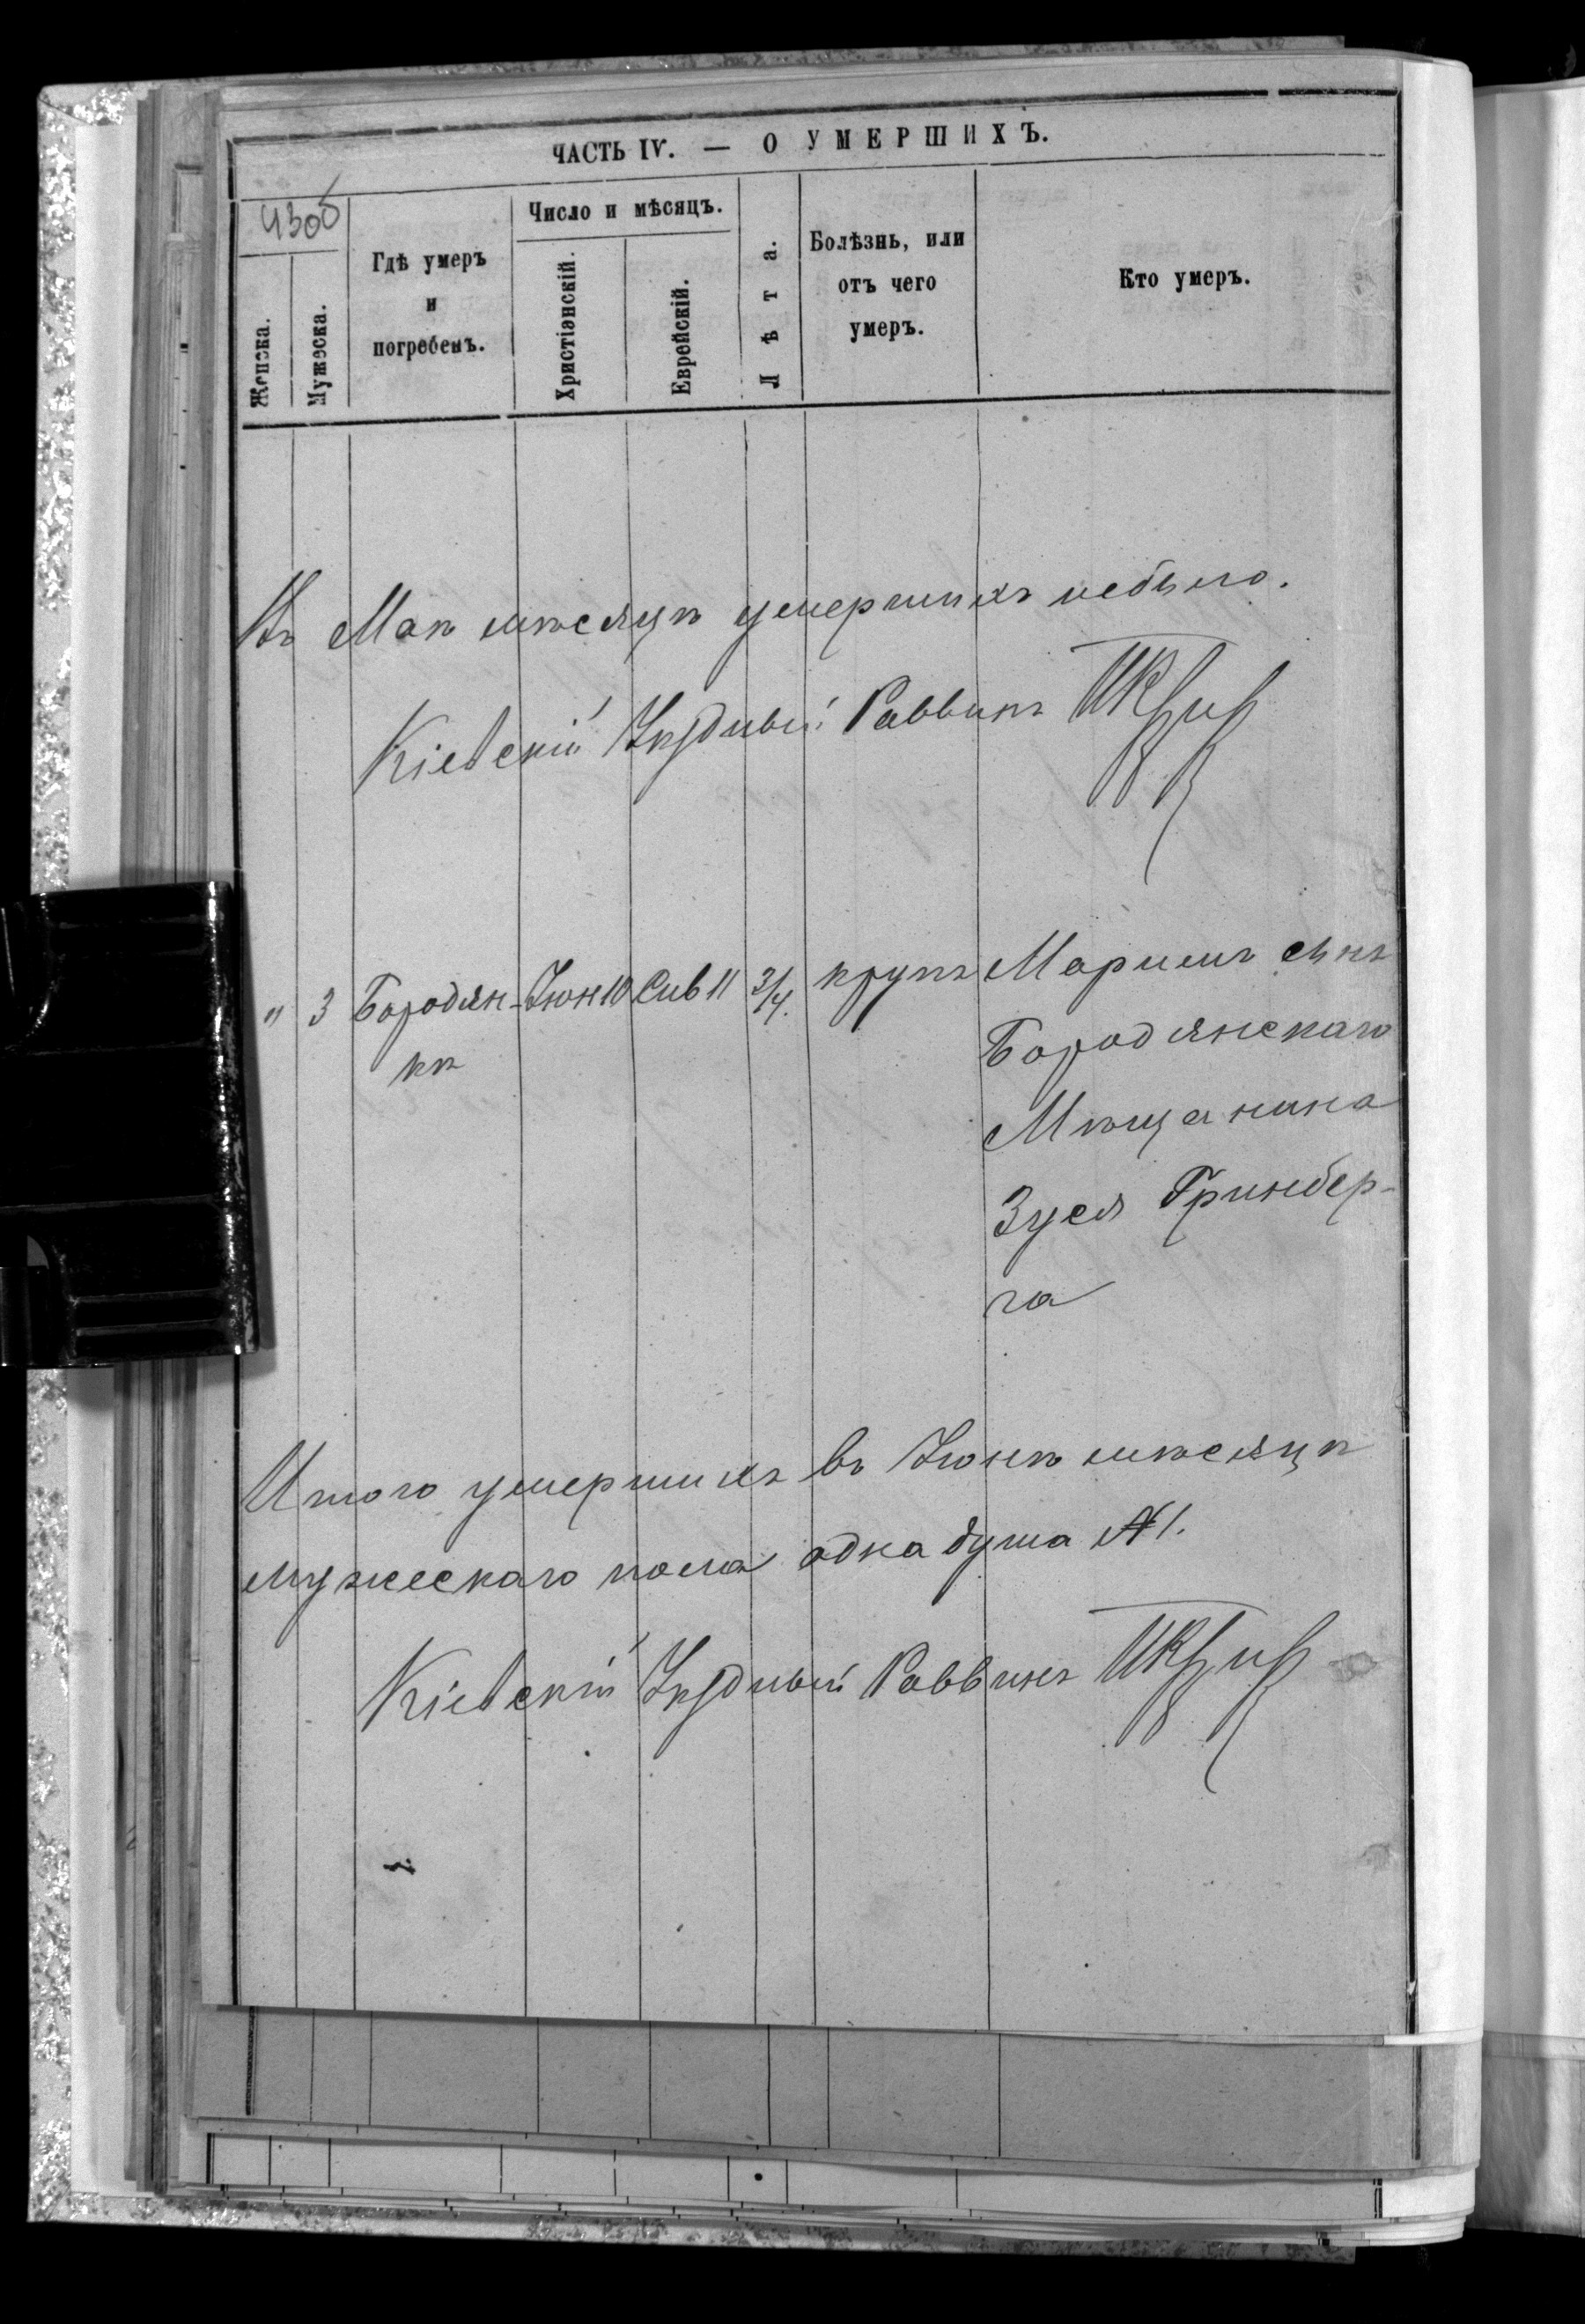 ЧАСТЬ IV. — О УМЕРШИХЪ.
430б
Женска.
Мужеска.
Гдѣ умеръ
и
погребенъ.
Число и мѣсяцъ.
Христіянскій.
Еврейскій.
Лѣта.
Болѣзнь, или
отъ чего
умеръ.
Кто умеръ.
Въ Маѣ мѣсяцѣ умершихъ небыло.
Кіевскій Уѣздный Раввинъ
" 3 Бородян- Іюн 10 Сив 11 3/4. крупъ Маримъ сынъ
кѣ
Бородянскаго
Мѣщанина
Зуся Гринбер-
га
Итого умершихъ въ Іюнѣ мѣсяцѣ
мужескаго пола одна душа №1.
Кіевскій Уѣздный Раввинъ